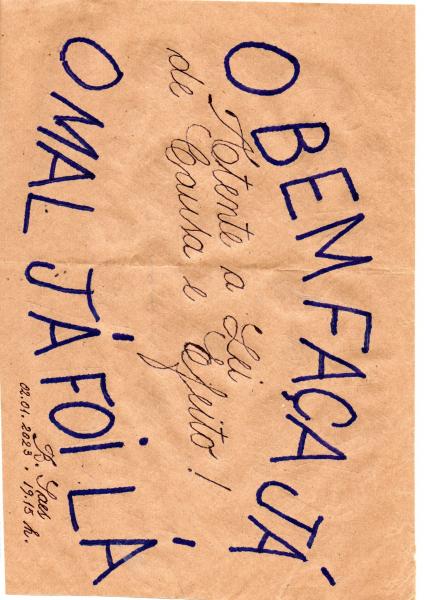 O BEM FAÇA JÁ
Atente a Lei
de Causa e Efeito!
O MAL JÁ FOI LÁ
R. Saes
02.01.2023, 19.15 h.